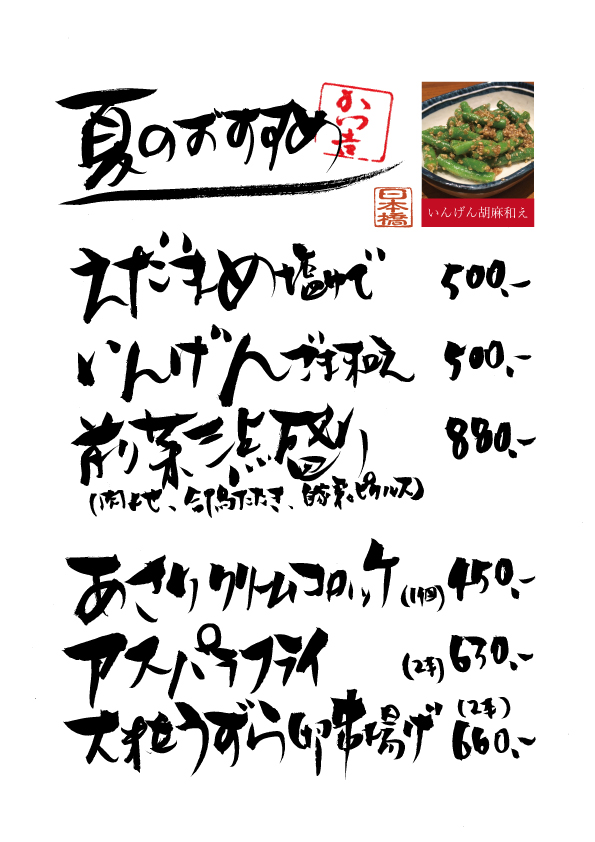 夏のおすすめ
かつ吉
日本橋
いんげん胡麻和え
えだまめ塩ゆで 500.-
いんげんごま和え 500.-
前菜三点盛り 880.-
(肉よせ、合鴨たたき、自家製ピクルス)
あさりクリームコロッケ(1個) 450.-
アスパラフライ (2本) 630.-
大粒うずら卵串揚げ (2本) 660.-